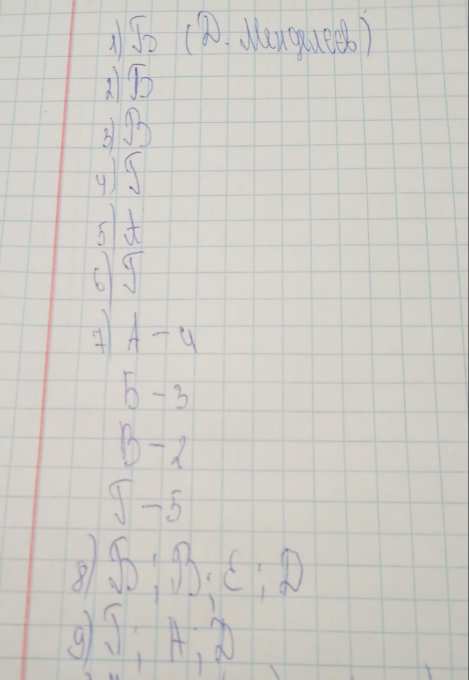 1) Б (Д. Менделеев)
2) Б
3) В
4) Г
5) А
6) Г
7) А – 4
Б – 3
В – 2
Г – 5
8) Б; В; Е; Д
9) Г; А; Д